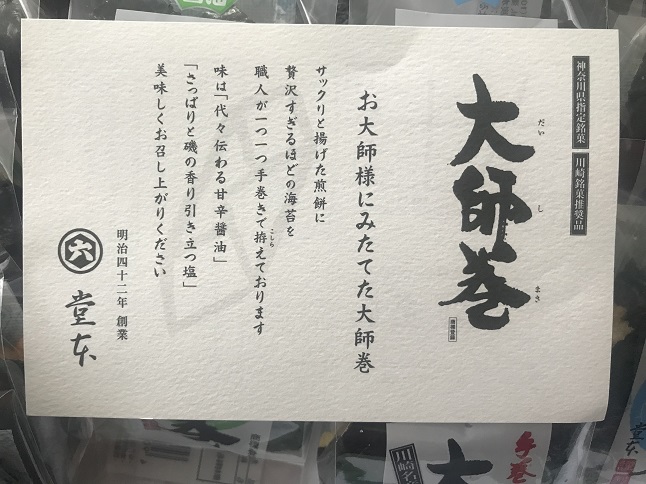 神奈川県指定銘菓
川崎銘菓推奨品
だいしまき
大師巻
お大師様にみたてた大師巻
サックリと揚げた煎餅に
贅沢すぎるほどの海苔を
職人が一つ一つ手巻きで拵えております
こしら
味は「代々伝わる甘辛醤油」
「さっぱりと磯の香り引き立つ塩」
美味しくお召し上がりください
明治四十二年 創業
六
堂本
手巻
大
川崎名
堂本